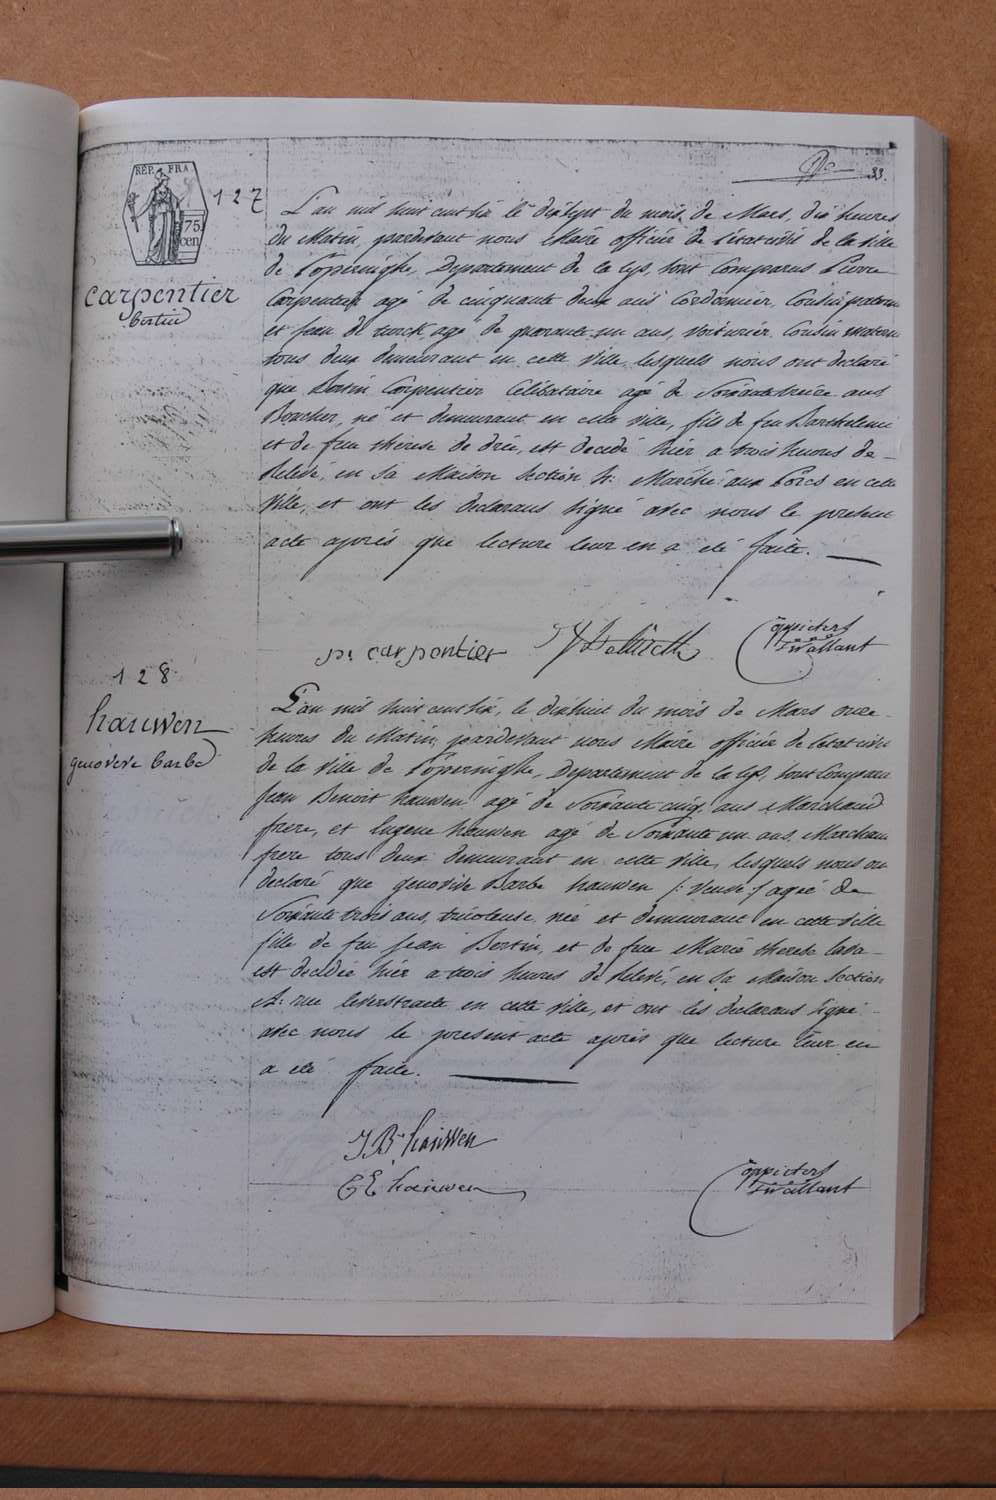 33.
REP. FRA.
75
cen
127
L'an mil huit cent dix le dixsept du mois de Mars, dix heures
du Matin, pardevant nous Maire officier de l'état civil de la ville
de Poperinghe, Departement de la Lys, sont Comparus Pierre
carpentier
bertin
Carpentier agé de cinquante deux ans Cordonnier, Cousin patern
et Jean De turck, agé de quarante un ans, voiturier, Cousin matern
tous deux demeurant en cette ville, lesquels nous ont declaré
que Bertin Carpentier Celibataire agé de Soixante treize ans
Boucher, né et demeurant en cette ville, fils de feu Barthelemi
et de feu therese de dré, est decedé hier a trois heures de
Relevé, en sa Maison Section h: Marché aux Porcs en cette
Ville, et ont les declarans signé avec nous le present
acte après que lecture leur en a eté faite.
pr carpentier
oppicters
vaillant
128
hauwen
genoveve barbe
L'an mil huit cent dix, le dixhuit du mois de Mars onze
heures du Matin, pardevant nous Maire officier de l'état civil
de la ville de Poperinghe, Departement de la Lys, sont Comparu
Jean Benoit hauwen agé de Soixante cinq ans Marchand
frere, et Eugene hauwen agé de Soixante un ans, Marchan
frere tous deux demeurant en cette ville, lesquels nous on
declaré que genovive Barbe hauwen /: veuve :/ agée de
Soixante trois ans, tricoteuse née et demeurant en cette ville
fille de feu Jean Bertin, et de feue Marie therese
est decedée hier a trois heures de Relevé, en sa Maison Section
A: rue en cette ville, et ont les declarans signé
avec nous le present acte après que lecture leur en
a eté faite.
J B hauwen
E hauwen
oppicters
vaillant